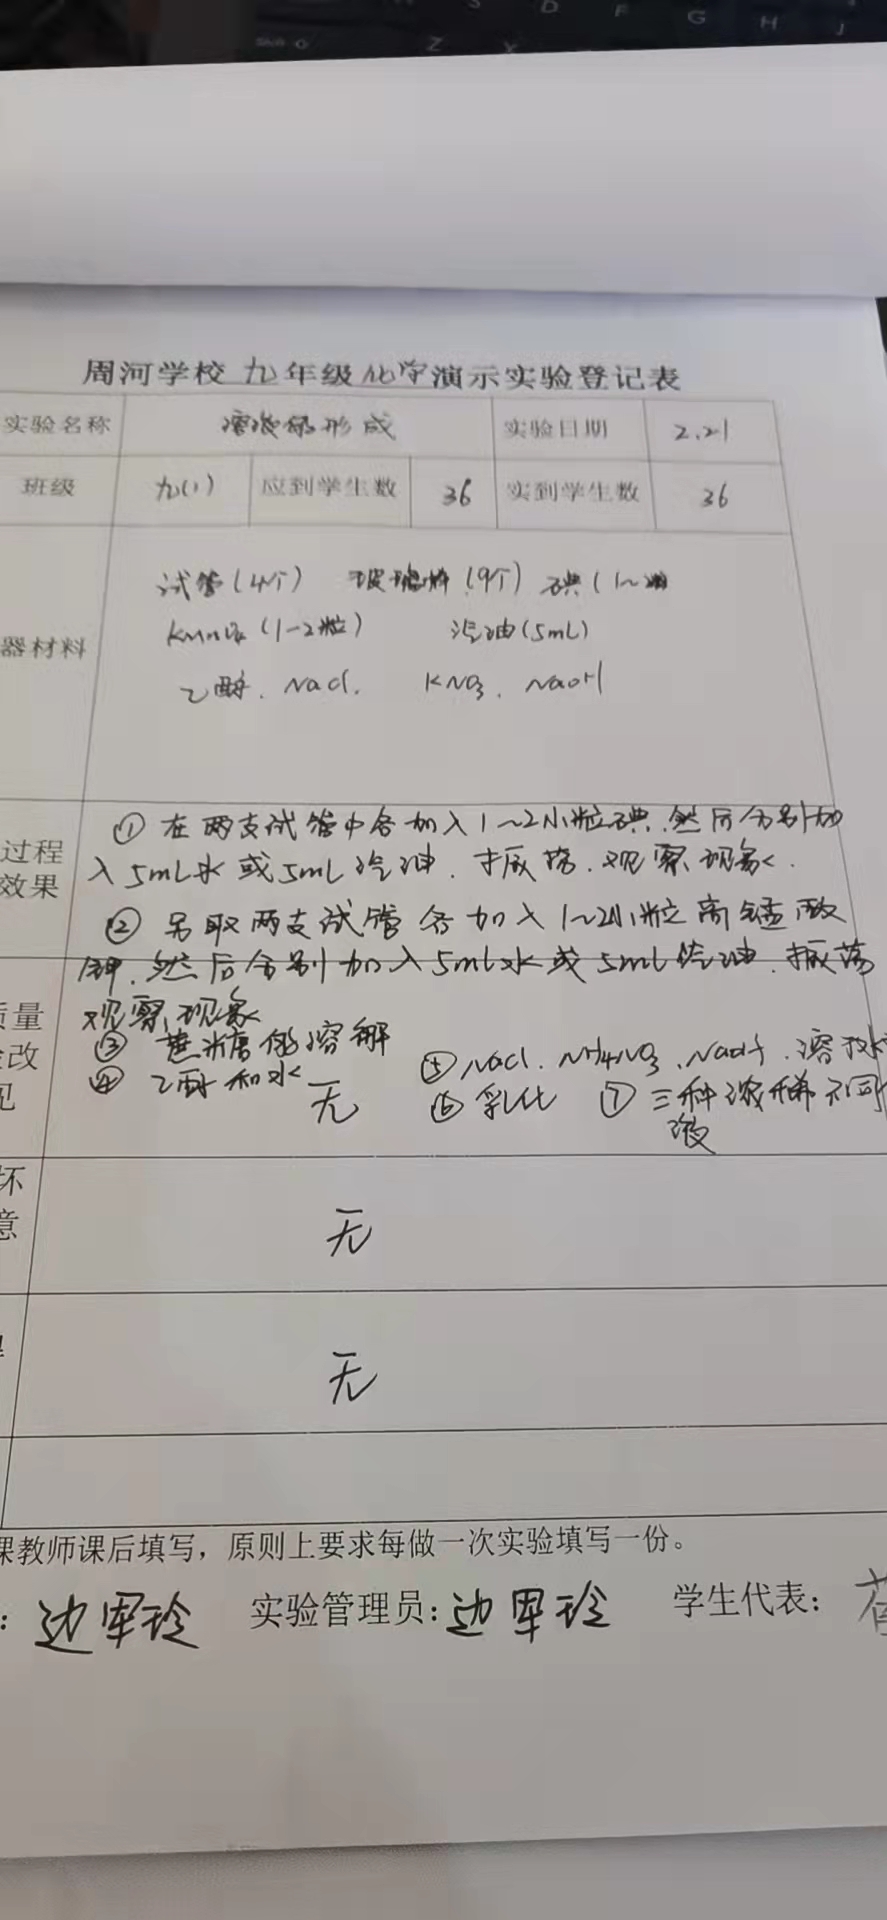 周河学校 九 年级 化学 演示实验登记表
实验名称 溶液的形成 实验日期 2.21
班级 九(1) 应到学生数 36 实到学生数 36
试管(4个) 玻璃棒(9个) 碘(1~
器材料 KMnO4(1-2粒) 汽油(5mL)
乙醇、NaCl、 KNO3、NaOH
①在两支试管中各加入1~2小粒碘,然后分别加
过程 入5mL水或5mL汽油,振荡,观察现象.
效果
②另取两支试管各加入1~2小粒高锰酸
钾,然后分别加入5mL水或5mL汽油,振荡
质量 观察现象
改 ③蔗糖的溶解
④乙醇和水 ⑤NaCl、NH4NO3、NaOH、溶于水
见 无 ⑥乳化 ⑦三种浓稀不同
液
坏
意 无
无
课教师课后填写,原则上要求每做一次实验填写一份。
: 边军玲 实验管理员: 边军玲 学生代表: